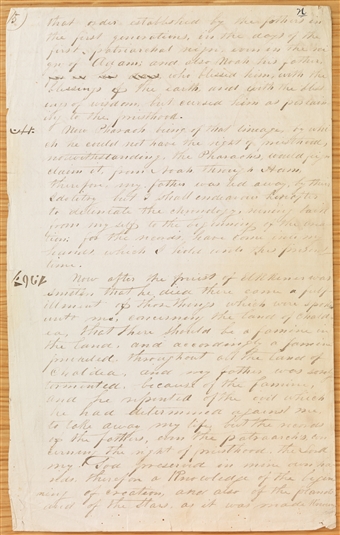 that order established by the fathers in
the first generations, in the days of the
first patriarchal reign, even in the rei
gn of Adam, and also Noah his father,
who blessed him, with the
blessings of the earth, and with the bless
ings of wisdom, but cursed him as pertain
ing to the priesthood.
Now Pharaoh being of that lineage by wh
ich he could not have the right of priesthood,
notwithstanding the Pharaohs would fain
claim it from Noah through Ham,
therefore, my father was led away, by their
idolitry but I shall endeavor hereafter
to delineate the chronology, running back
from my self to the beginning of the crea
tion, for the records have come into my
hands which I hold until this present
time.
Now after the priest of Elkkener was
smitten, that he died there came a ful
filment of those things which were spoken
unto me, concerning the land of Chald
ea, that there should be a famine in
the land, and accordingly a famine
prevailed throughout all the land of
Chaldea, and my father was sorely
tormented, because of the famine,
and he repented of the evil which
he had determined against me
to take away my life, but the records
of the fathers, even the patriarchs, con
cerning the right of priesthood, the Lord
my God preserved in mine own ha
nds, therefore a knowledge of the begin
ning of creation, and also of the planets
and of the Stars, as it was made known